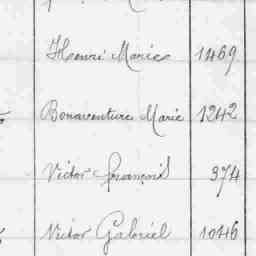 Henri Marie 1469
Bonaventure Marie 1242
Victor François 374
Victor Gabriel 1046